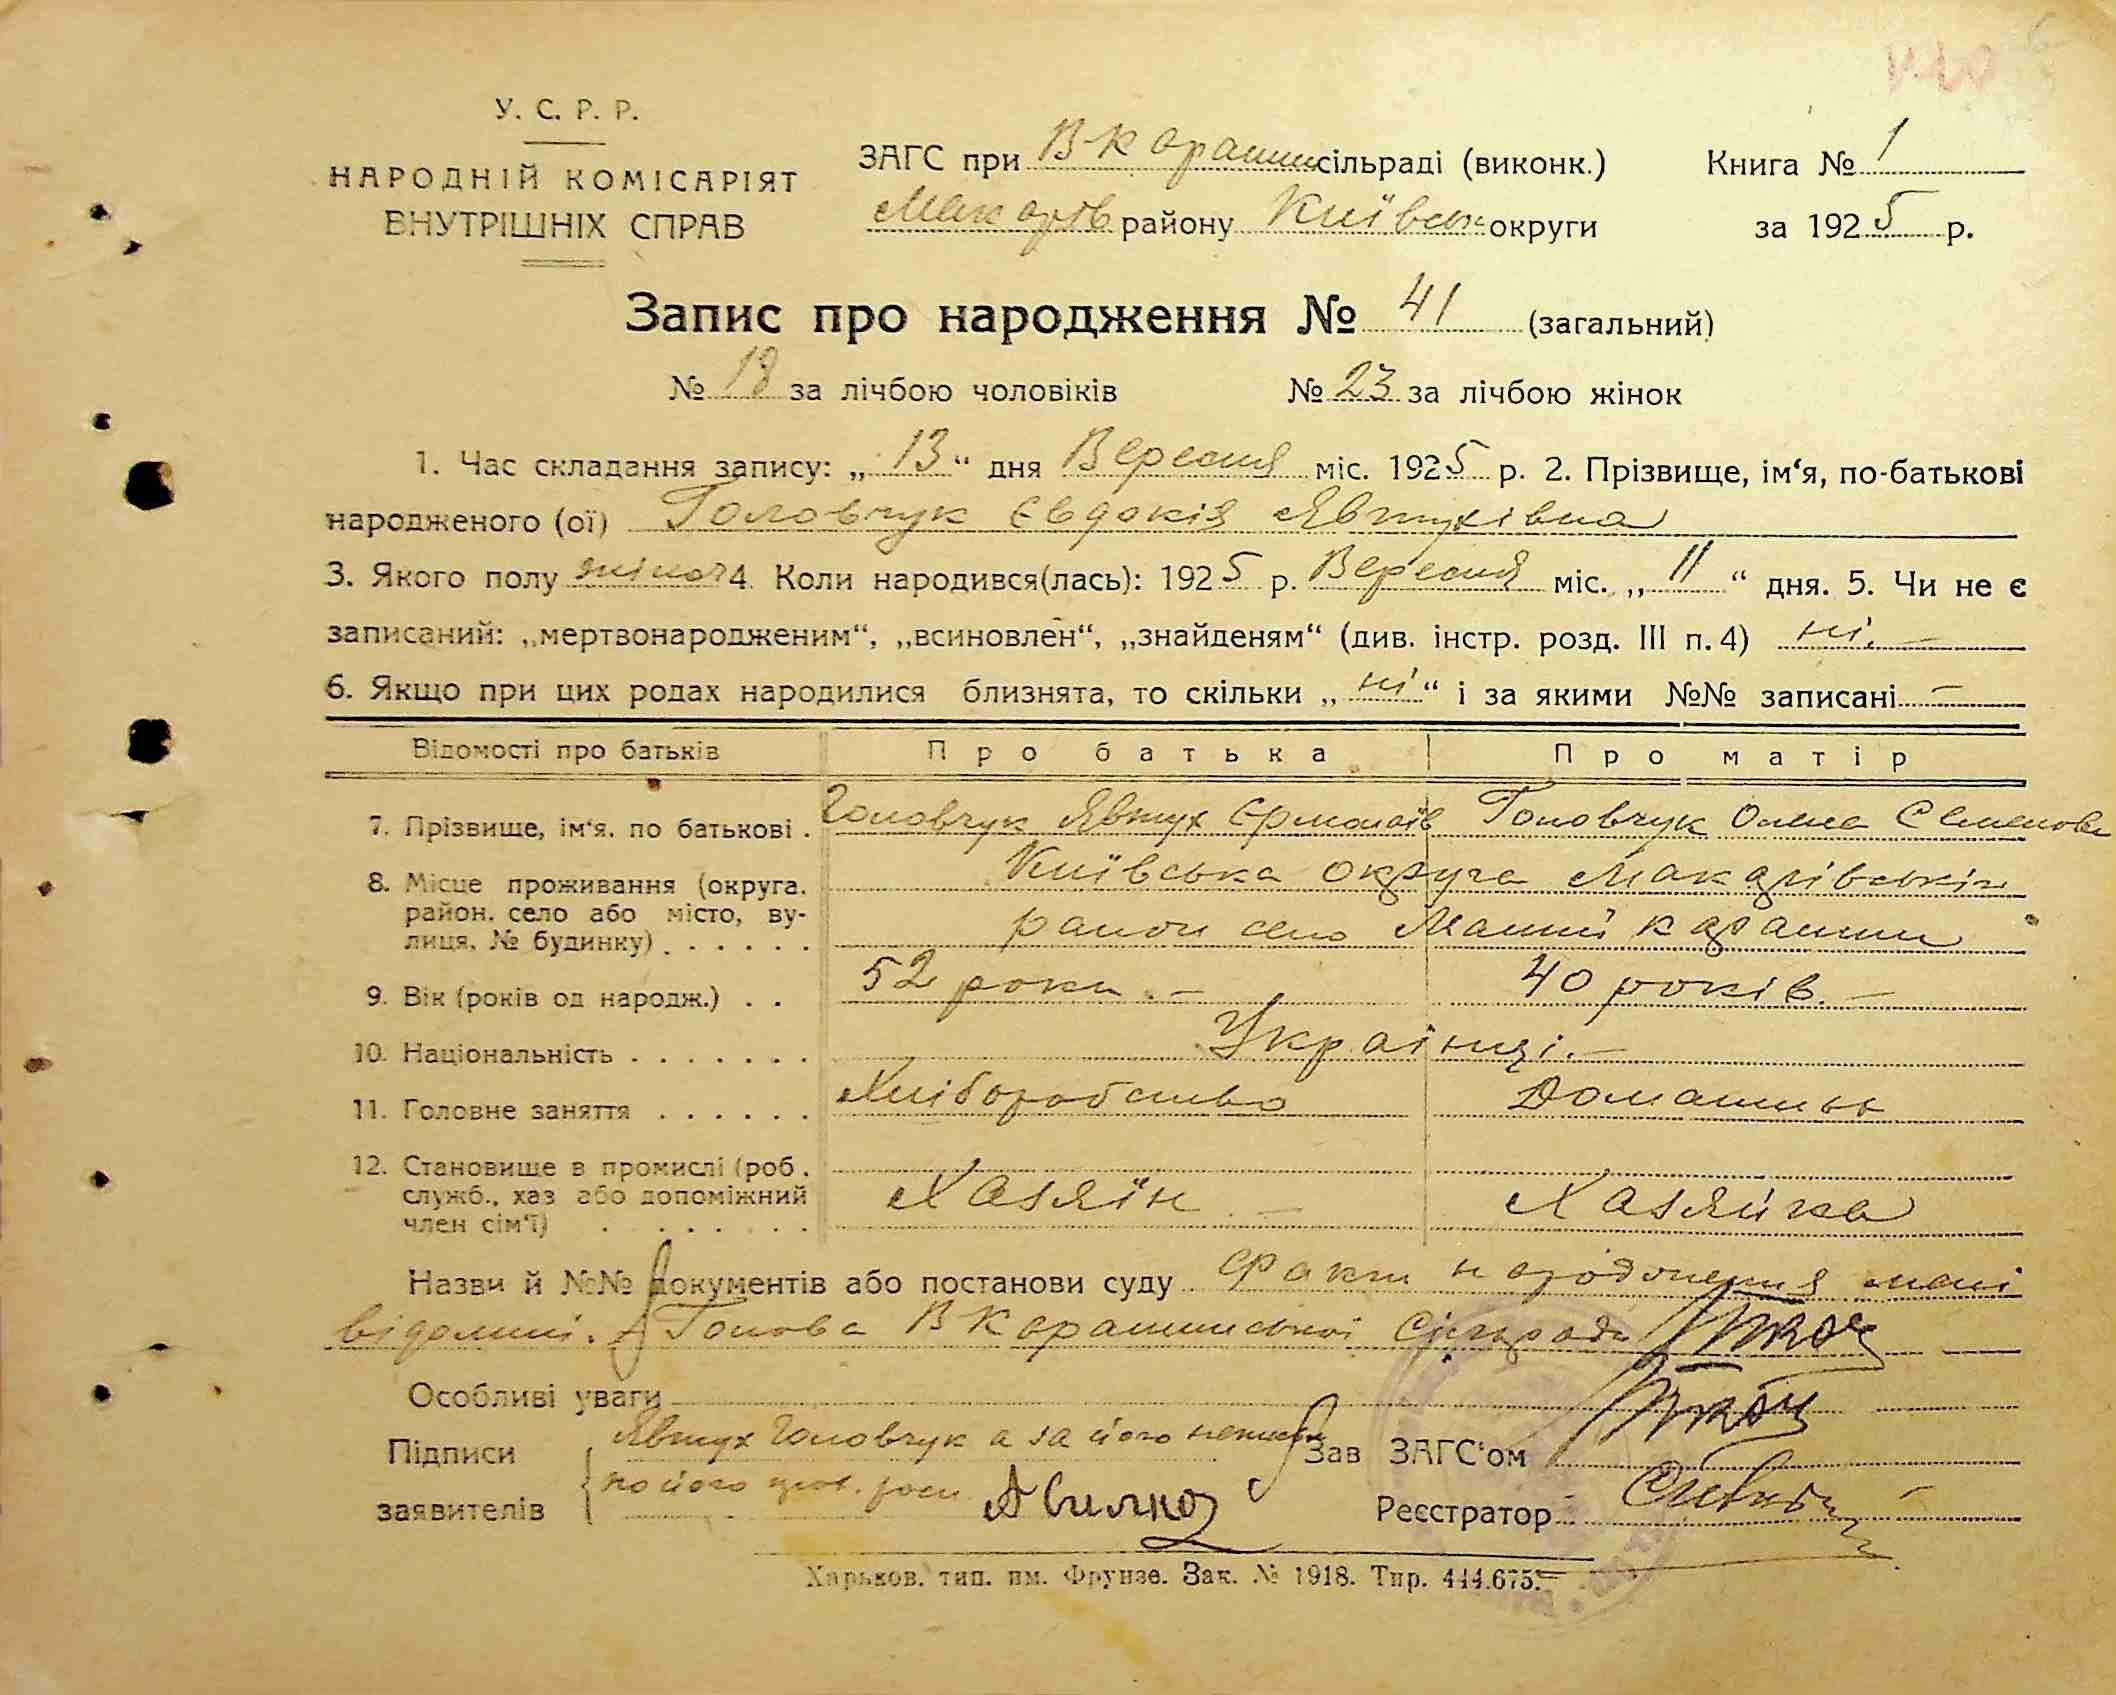 У. С. Р. Р.
НАРОДНІЙ КОМІСАРІЯТ
ВНУТРІШНІХ СПРАВ
ЗАГС при В-Карашин сільраді (виконк.)
Макарів району Київськ округи
Книга № 1
за 1925 р.
Запис про народження № 41 (загальний)
№ 18 за лічбою чоловіків № 23 за лічбою жінок
1. Час складання запису: „13“ дня Вересня міс. 1925 р. 2. Прізвище, ім‘я, по-батькові
народженого (ої) Головчук Євдокія Явтухівна
3. Якого полу жіноч 4. Коли народився(лась): 1925 р. Вересня міс. „11“ дня. 5. Чи не є
записаний: „мертвонародженим“, „всиновлен“, „знайденям“ (див. інстр. розд. III п. 4) ні. —
6. Якщо при цих родах народилися близнята, то скільки „ні“ і за якими №№ записані —
Відомості про батьків Про батька Про матір
7. Прізвище, ім‘я. по батькові . Головчук Явтух Єрмолаїв Головчук Олена Семенова
8. Місце проживання (округа. Київська округа Макарівській
район. село або місто, ву-
лиця. № будинку) . . . . . . район село Малий Карашин
9. Вік (років од народж.) . . 52 роки. — 40 років. —
10. Національність . . . . . . . Українці. —
11. Головне заняття . . . . . . Хліборобство Домашнь
12. Становище в промислі (роб.
служб., хаз або допоміжний Хазяїн — Хазяйка
член сім‘ї) . . . . . . .
Назви й №№ документів або постанови суду Факт народження мені
відомий. Голова ВКарашинської Сільради
Особливі уваги
Підписи Явтух Головчук а за його неписьм
Зав ЗАГС‘ом
заявителів по його
Реєстратор
Харьков. тип. им. Фрунзе. Зак. № 1918. Тир. 444.675.